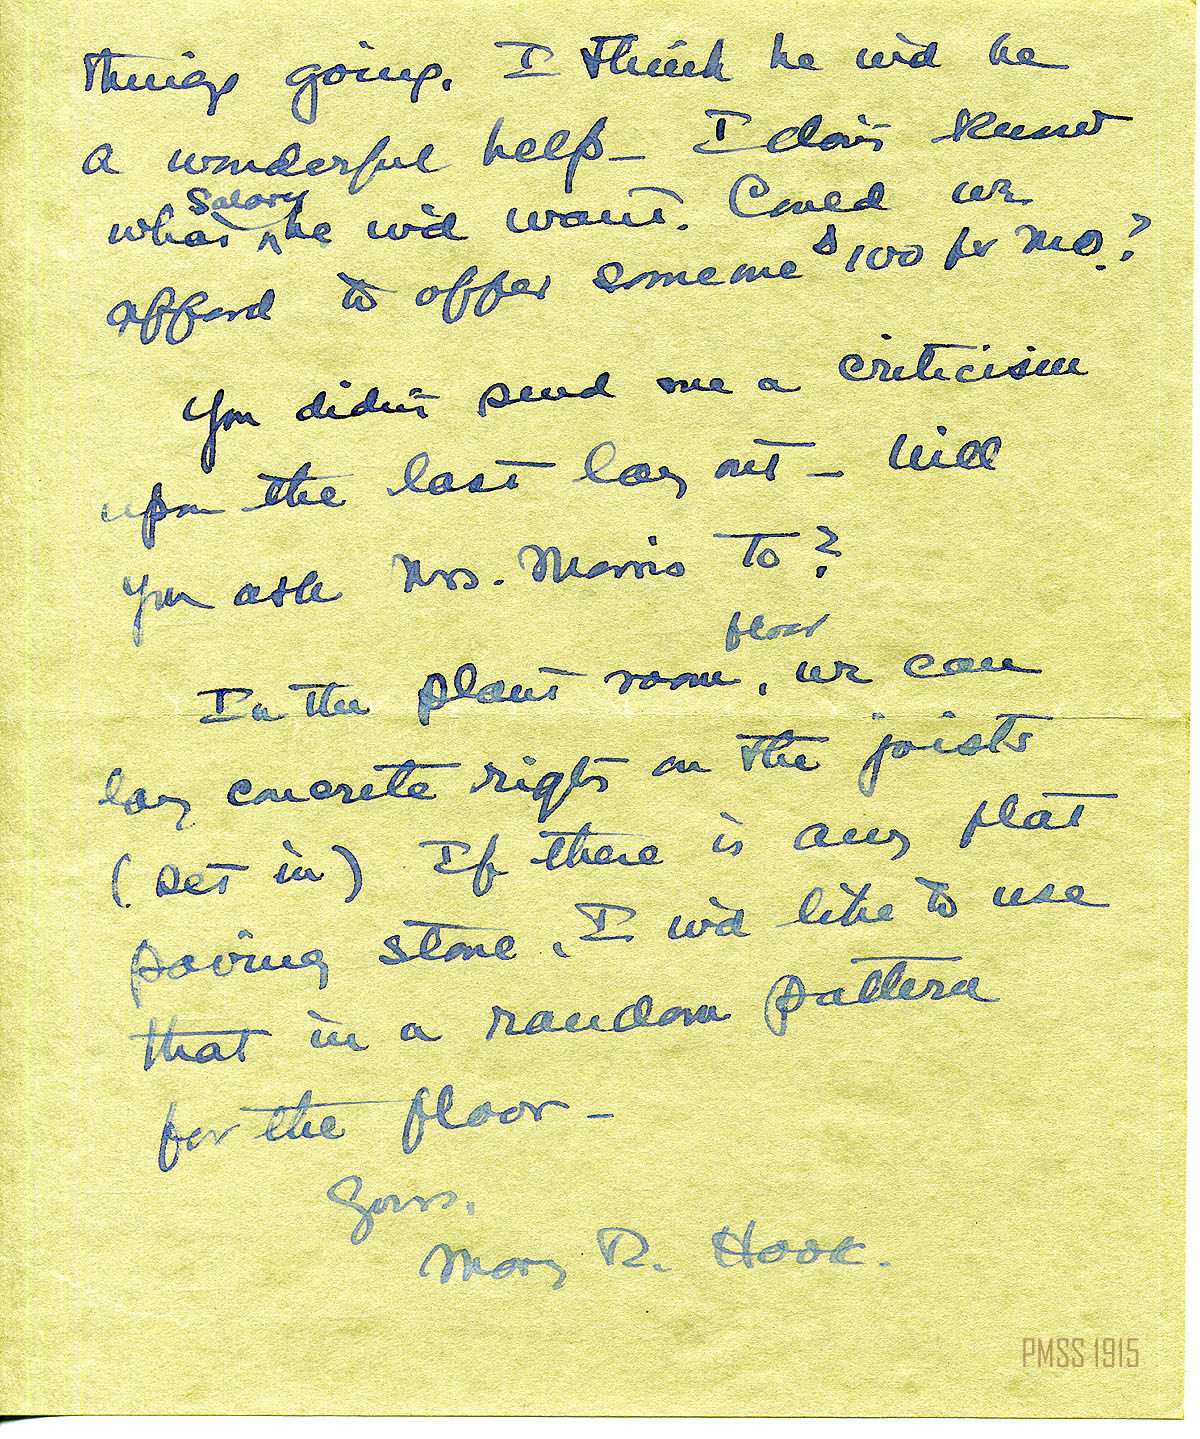 things going. I think he w'd be
a wonderful help – I don't know
what salary he w'd want. Could we
afford to offer someone $100 per mo.?
You didn't send me a criticism
upon the last lay out – Will
you ask Mrs. Morris to?
floor
In the plant room, we can
lay concrete right on the joists
(set in) If there is any flat
paving stone, I w'd like to use
that in a random pattern
for the floor –
Yours,
Mary R. Hook.
PMSS 1915